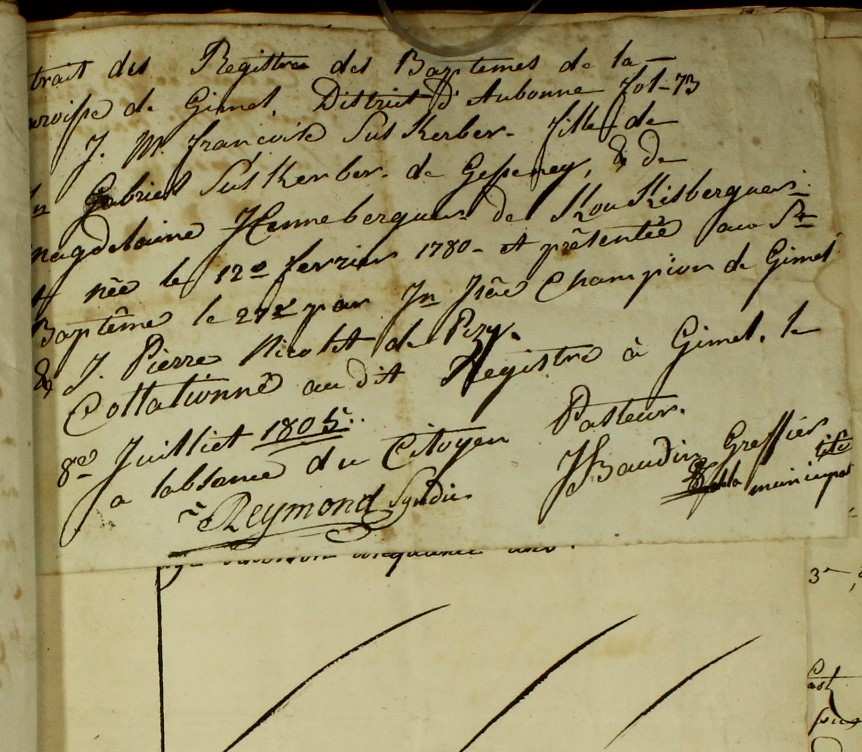 trait des Registre des Baptemes de la
aroisse de Gimel, District d'Aubonne fol-73
J. M. françoise Suskerber. fille de
Jn Gabriel Suskerber. de Gesseney, & de
magdelaine Henneberguer de
née le 12e fevrier 1780 - et prêsentée au St
Baptême le 27e par Jn Isâc Champion de Gimel
& J. Pierre Nicolet de Pizy.
Collationné au dit Registre à Gimel, le
8e Juilliet 1805.
a labsance du Citoyen Pasteur.
Reymond Syndic
JSBaudin Greffier
de la municipalité
cinquante ans.
3e